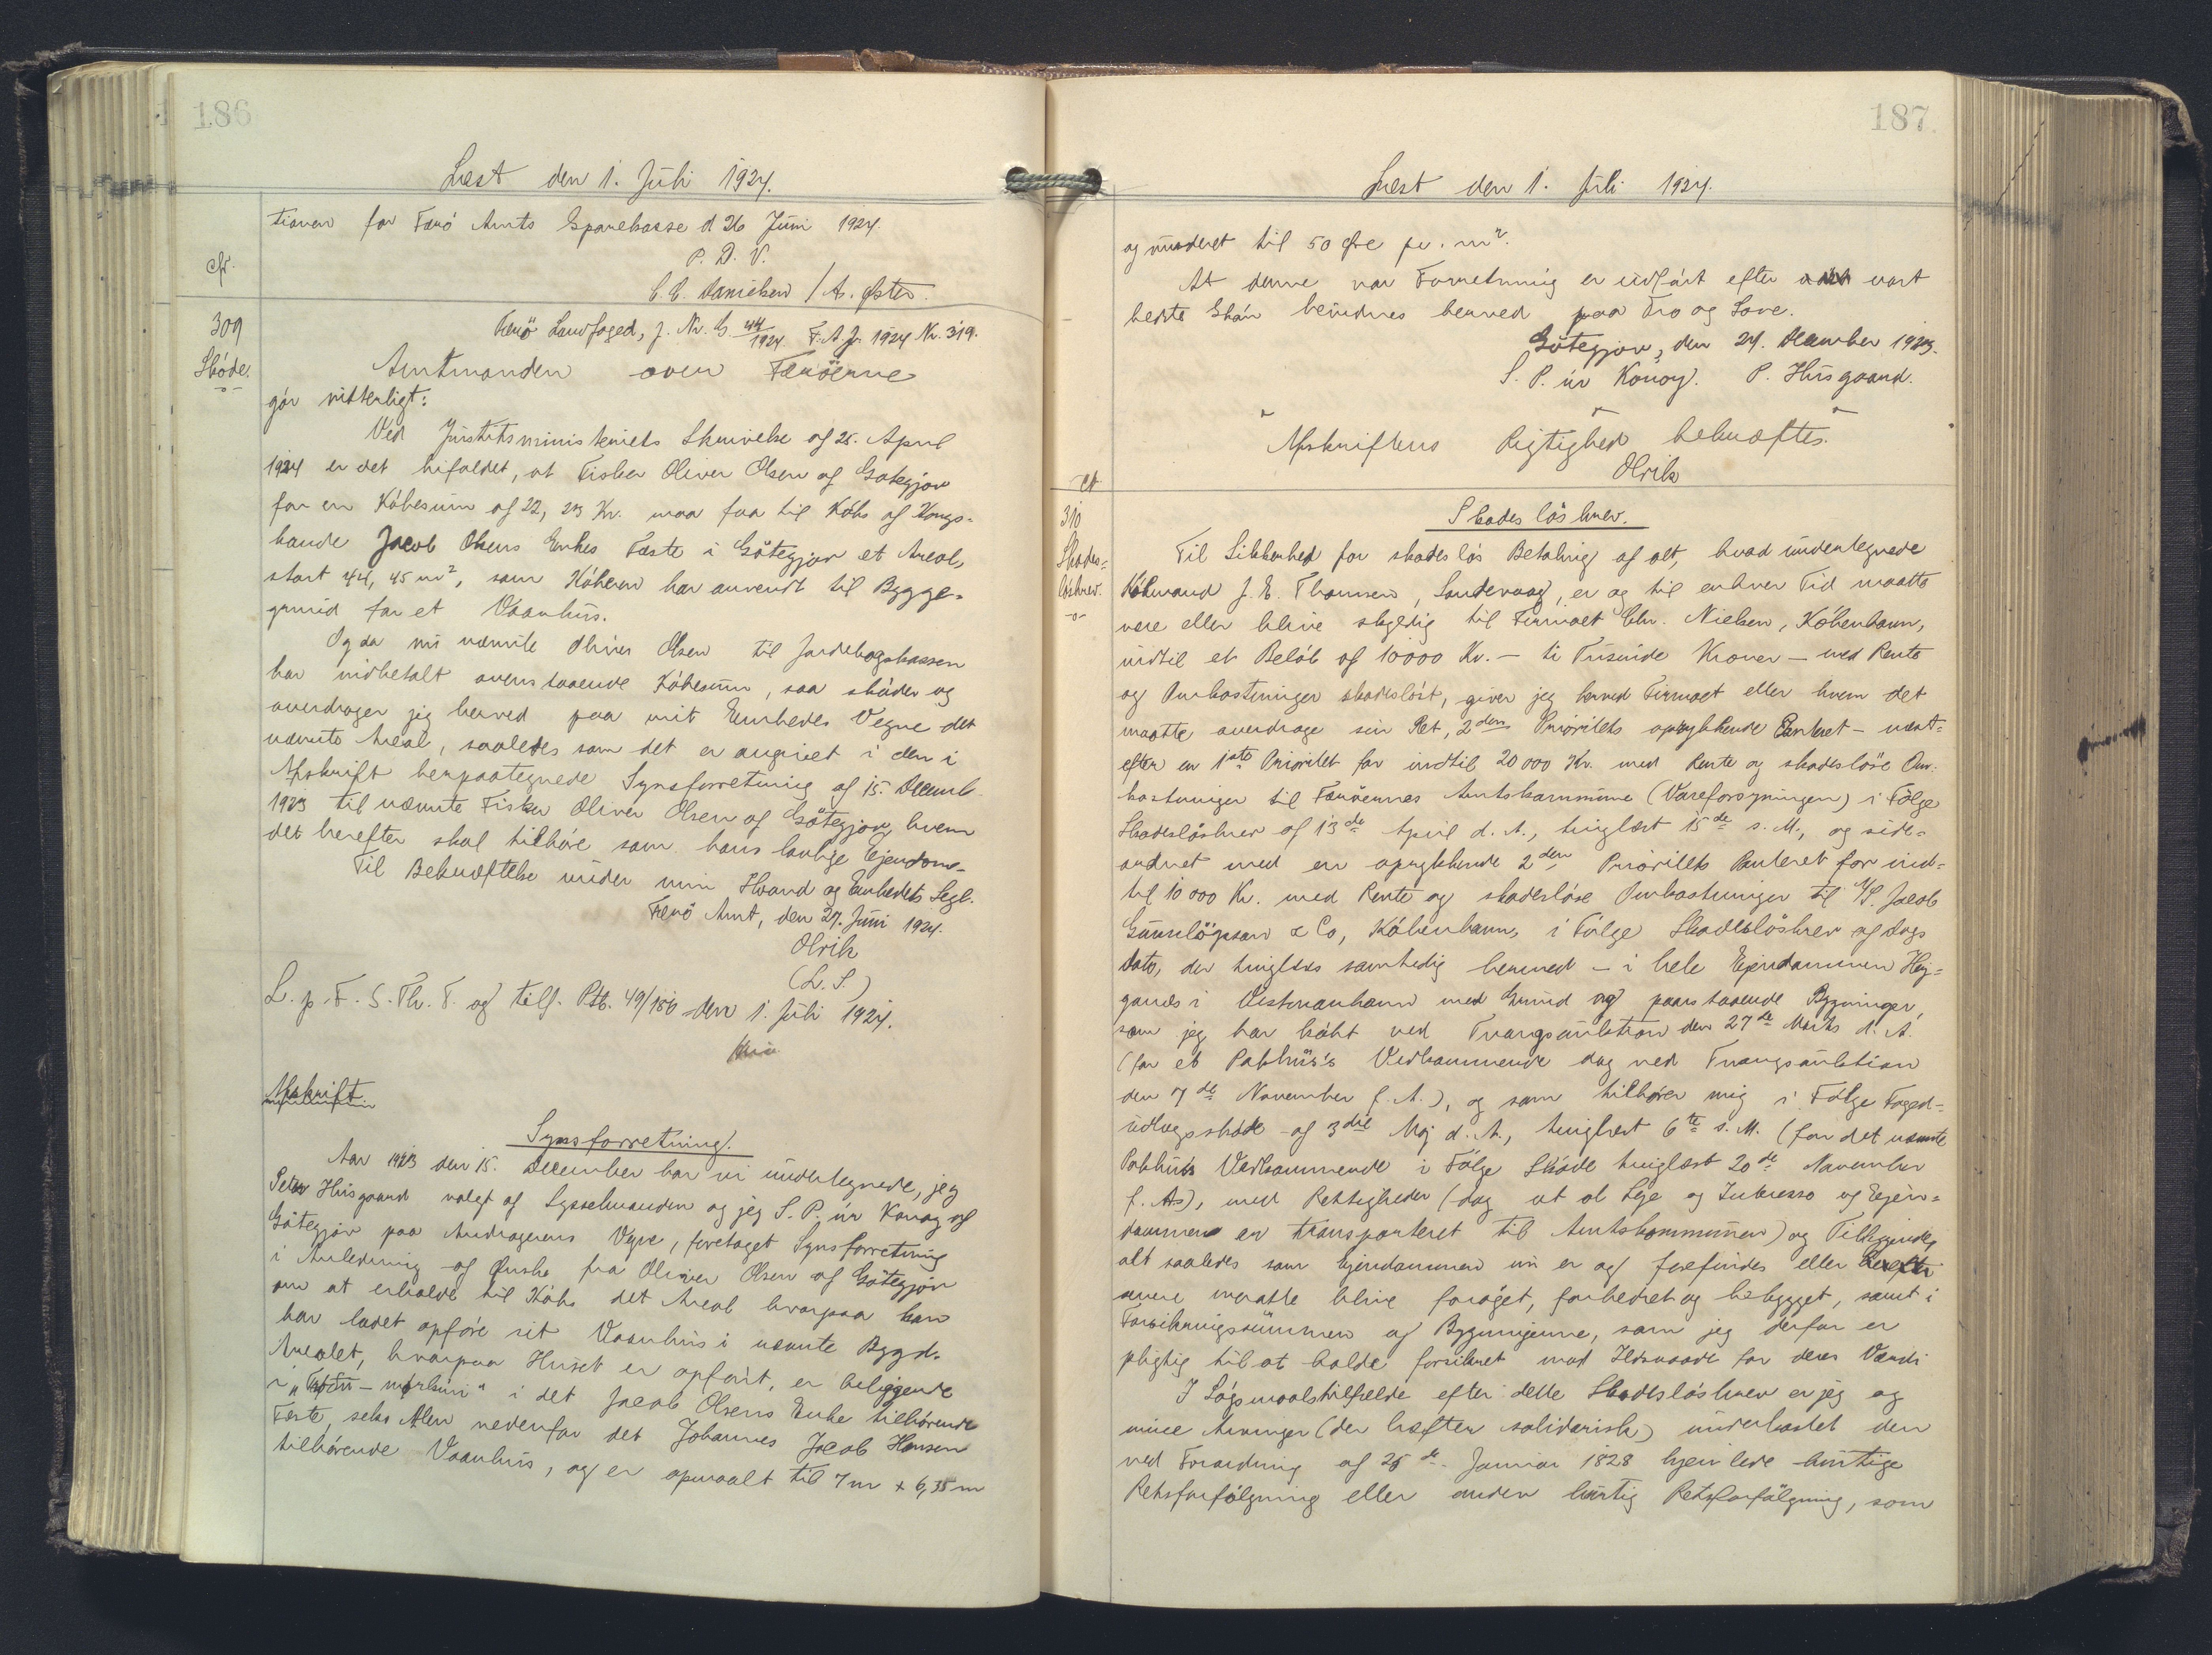 186
Læst den 1. Juli 1924.
tionen for Færö Amts Sparekasse d 26 Juni 1924.
P. D. V.
C. C. Danielsen / A. Øster.
cfr.
309
Skóde.
Færö Landfoged, J. Nr. G. 44/1924. F. A. Jr. 1924 Nr. 319.
Amtmanden over Færöerne
gór vitterligt:
Ved Justitsministeriets Skrivelse af 25. April
1924 er det bifaldet, at Fisker Oliver Olsen af Götegjov
for en Kóbesum af 22, 23 Kr. maa faa til Kóbs af Kongs-
bonde Jacob Olsens Enkes Fæste i Götegjov et Areal,
stort 44, 45 m², som Kóberen har anvendt til Bygge-
grund for et Vaanhus.
Og da nu nævnte Oliver Olsen til Jordebogskassen
har indbetalt ovenstaaende Kóbesum, saa skóder og
overdrager jeg herved paa mit Embedes Vegne det
nævnte Areal, saaledes som det er angivet i den i
Afskrift herpaategnede Synsforretning af 15. Decemb.
1923 til nævnte Fisker Oliver Olsen af Götegjov, hvem
det herefter skal tilhóre som hans lovlige Ejendom.
Til Bekræftelse under min Haand og Embedets Segl.
Færö Amt, den 27. Juni 1924.
Olrik
(L. S.)
L. p. F. S. Th. T. og tilf. Ptb. 49/180 den 1. Juli 1924.
Afskrift.
Synsforretning.
Aar 1923 den 15. December har vi undertegnede, jeg
Peter Husgaard valgt af Sysselmanden og jeg S. P. úr Konoy af
Götegjov paa Andragerens Vegne, foretaget Synsforretning
i Anledning af Ønske fra Oliver Olsen af Götegjov
om at erholde til Kóbs det Areal hvorpaa han
har ladet opfóre sit Vaanhus i nævnte Bygd.
Arealet, hvorpaa Huset er opfórt, er beliggende
i " - mórkini" i det Jacob Olsens Enke tilhórende
Fæste, seks Alen nedenfor det Johannes Jacob Hansen
tilhórende Vaanhus, og er opmaalt til 7 m x 6,35 m
187.
Læst den 1. Juli 1924.
og vurderet til 50 Øre pr. m².
At denne vor Forretning er udfórt efter vort
bedste Skón bevidnes herved paa Tro og Love.
Götegjov, den 24. December 1923.
S. P. úr Konoy. P. Husgaard.
Afskriftens Rigtighed bekræftes.
Olrik
cfr
310
Skades-
lósbrev.
-o-
Skadeslósbrev.
Til Sikkerhed for skadeslós Betaling af alt, hvad undertegnede
Kóbmand J. E. Thomsen, Sandevaag, er og til enhver Tid maatte
være eller blive skyldig til Firmaet Chr. Nielsen, Kóbenhavn,
indtil et Belób af 10000 Kr. — ti Tusinde Kroner — med Rente
og Omkostninger skadeslóst, giver jeg herved Firmaet eller hvem det
maatte overdrage sin Ret, 2den Prioritets oprykkende Panteret — næst-
efter en 1ste Prioritet for indtil 20000 Kr. med Rente og skadeslóse Om-
kostninger til Færöernes Amtskommune (Vareforsyningen) i Fólge
Skadeslósbrev af 13de April d. A., tinglæst 15de s. M., og side-
ordnet med en oprykkende 2den Prioritets Panteret for ind-
til 10000 Kr. med Rente og skadeslóse Omkostninger til A/S. Jacob
Gunnlögsson & Co, Kóbenhavn, i Fólge Skadeslósbrev af Dags
Dato, der tinglæses samtidig hermed — i hele Ejendommen Hej-
ganæs i Vestmanhavn med Grund og paastaaende Bygninger,
som jeg har kóbt ved Tvangsauktion den 27de Marts d. A.
(for et Pakhus's Vedkommende dog ved Tvangsauktion
den 7de November f. A.), og som tilhórer mig i Fólge Foged-
udlægsskóde af 3die Maj d. A., tinglæst 6te s. M. (for det nævnte
Pakhus's Vedkommende i Fólge Skóde tinglæst 20de November
f. A.), med Rettigheder (dog at al Leje og Interesse og Ejen-
dommene er transporteret til Amtskommunen) og Tilliggende,
alt saaledes som Ejendommen nu er og forefindes eller herefter
mere maatte blive foróget, forbedret og bebygget, samt i
Forsikringssummen af Bygningerne, som jeg derfor er
pligtig til at holde forsikret mod Ildsvaade for deres Værdi
I Lógsmaalstilfælde efter dette Skadeslósbrev er jeg og
mine Arvinger (der hæfter solidarisk) underkastet den
ved Forordning af 25de Januar 1828 hjemlede hurtige
Retsforfólgning eller anden hurtig Retsforfólgning, som